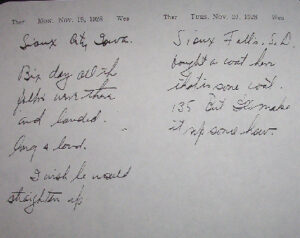 Ther Mon. Nov. 19, 1928 Wea
Sioux City, Iowa.
Big day all the
fellas were there
and landed.
long a loud.
I wish he would
straighten up
Ther Tues. Nov. 20, 1928 Wea
Sioux Falls, S.D.
bought a coat here
that is some coat.
135 But I'll make
it up some how.